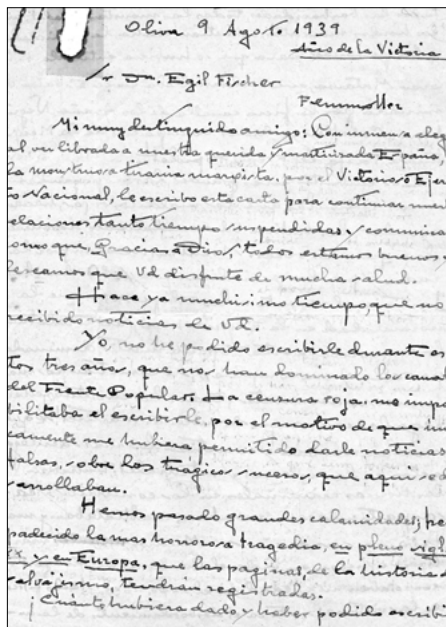 Oliva 9 Agosto 1939
Año de la Victoria
Sr Dn. Egil Fischer
Femmoller
Mi muy distinguido amigo: Con inmensa aleg
al ver librada a nuestra querida y martirizada España,
la monstruosa tirania marxista, por el Victorioso Ejer
to Nacional, le escribo esta carta para continuar nues
relaciones, tanto tiempo suspendidas y comunicar
omo que, Gracias a Dios, todos estamos buenos y
deseamos que Vd disfrute de mucha salud.
Hace ya muchisimo tiempo, que no
recibido noticias de Vd.
Yo, no he podido escribirle durante es
tos tres años, que nos han dominado los canal
del Frente Popular. La censura roja, me impo
bilitaba el escribirle, por el motivo de que úni
camente me hubiera permitido darle noticias
falsas, sobre los tragicos sucesos, que aqui se de
sarrollaban.
Hemos pasado grandes calamidades; he
padecido la mas horrorosa tragedia, en pleno siglo
XX, y en Europa, que las paginas de la historia d
salvajismo, tendrán registradas.
¡Cuánto hubiera dado y haber podido escribi